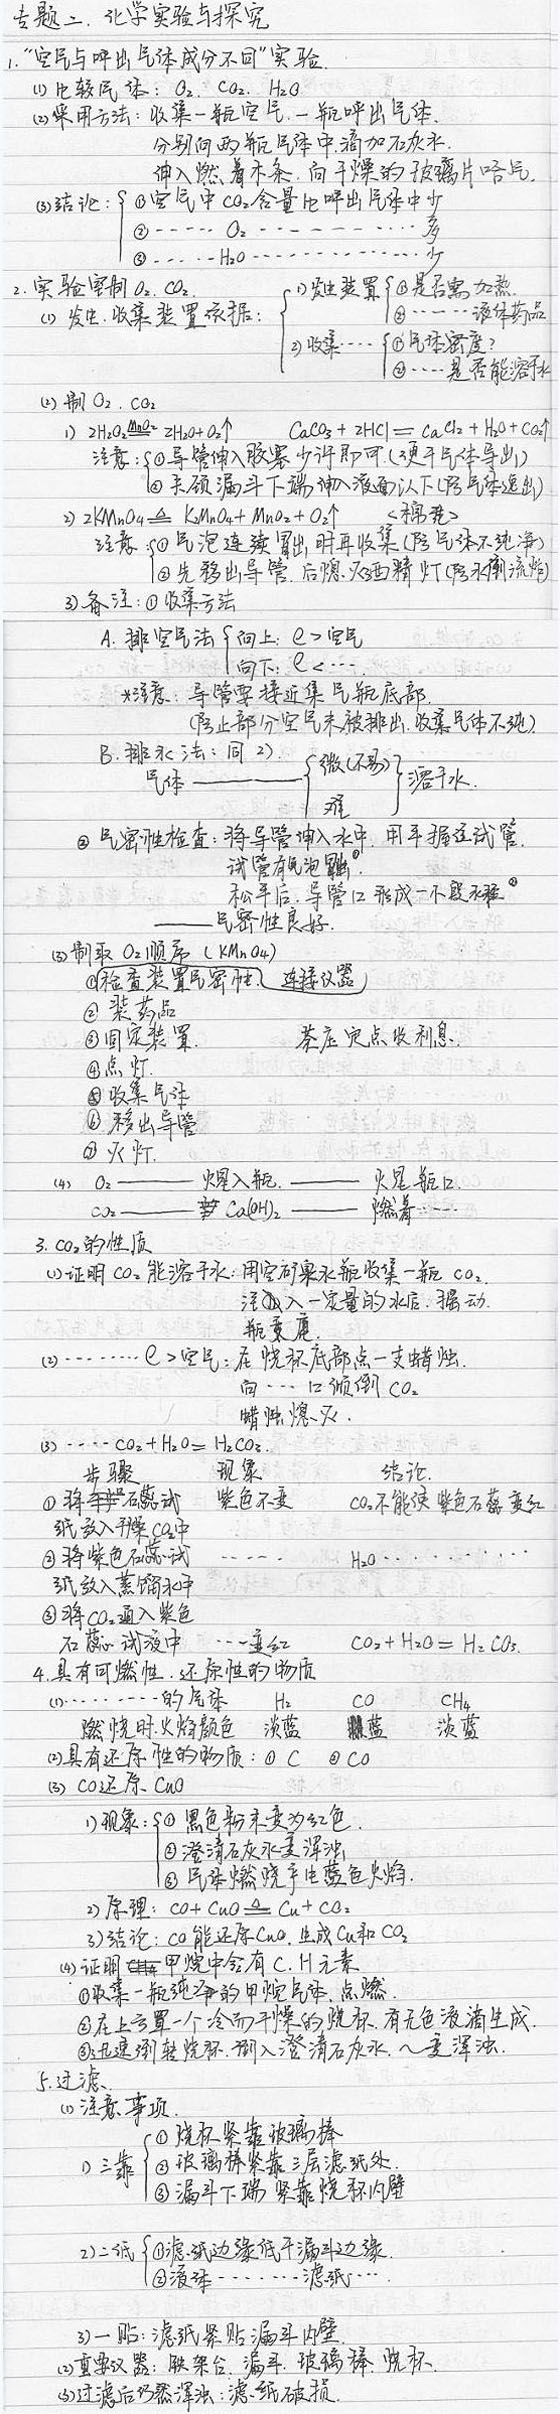 专题二、化学实验与探究
1. "空气与呼出气体成分不同"实验.
(1) 比较气体: O₂. CO₂. H₂O
(2) 采用方法: 收集一瓶空气. 一瓶呼出气体.
分别向两瓶气体中滴加石灰水.
伸入燃着木条. 向干燥的玻璃片哈气.
(3) 结论: ①空气中CO₂含量比呼出气体中少
② ······ O₂ ········· 多
③ ······ H₂O ········· 少
2. 实验室制O₂. CO₂.
(1) 发生. 收集装置依据: 1) 发生装置 ①是否需加热.
② ······ 液体药品
2) 收集···· ①气体密度?
② ···· 是否能溶于水
(2) 制O₂. CO₂
1) 2H₂O₂ MnO₂ 2H₂O+O₂↑ CaCO₃ + 2HCl = CaCl₂ + H₂O + CO₂↑
注意: ①导管伸入胶塞少许即可. (便于气体导出)
②长颈漏斗下端伸入液面以下(防气体逸出)
2) 2KMnO₄ △ K₂MnO₄ + MnO₂ + O₂↑ <棉花>
注意: ①气泡连续冒出时再收集(防气体不纯净)
②先移出导管. 后熄灭酒精灯(防水倒流炸)
3) 备注: ①收集方法
A. 排空气法 向上: ρ>空气
向下: ρ<····
*注意: 导管要接近集气瓶底部.
(防止部分空气未被排出. 收集气体不纯).
B. 排水法: 同2).
气体 —— 微(不易) 难 溶于水.
② 气密性检查: 将导管伸入水中. 用手握住试管.
试管有气泡冒出①.
松手后. 导管口形成一小段水柱②
—— 气密性良好.
(3) 制取O₂顺序 (KMnO₄)
①检查装置气密性. 连接仪器
② 装药品
③ 固定装置. 茶庄定点收利息.
④ 点灯.
⑤ 收集气体
⑥ 移出导管
⑦ 火灯.
(4) O₂ —— 火星入瓶. —— 火星瓶口.
CO₂ —— Ca(OH)₂ —— 燃着····
3. CO₂的性质
(1) 证明CO₂能溶于水: 用空矿泉水瓶收集一瓶CO₂.
注入一定量的水后. 振动.
瓶变瘪.
(2) ········ ρ>空气: 在烧杯底部点一支蜡烛.
向···口倾倒CO₂
蜡烛熄灭.
(3) ···· CO₂+H₂O=H₂CO₃.
步骤 现象 结论.
① 将石蕊试 紫色不变 CO₂不能使紫色石蕊变红
纸放入干燥CO₂中
② 将紫色石蕊试 ····· H₂O ·········
纸放入蒸馏水中
③ 将CO₂通入紫色
石蕊试液中 ···变红 CO₂+H₂O=H₂CO₃.
4. 具有可燃性. 还原性的物质
(1) ········· 的气体 H₂ CO CH₄
燃烧时火焰颜色 淡蓝 蓝 淡蓝
(2) 具有还原性的物质: ① C ② CO
(3) CO还原CuO
1) 现象: ① 黑色粉末变为红色.
② 澄清石灰水变浑浊
③ 气体燃烧产生蓝色火焰.
2) 原理: CO + CuO △ Cu + CO₂
3) 结论: CO能还原CuO. 生成Cu和CO₂
(4) 证明甲烷中含有C. H元素
①收集一瓶纯净的甲烷气体. 点燃.
②在上方罩一个冷而干燥的烧杯. 有无色液滴生成.
③迅速倒转烧杯. 倒入澄清石灰水. ~变浑浊.
5. 过滤
(1) 注意事项.
1) 三靠 ① 烧杯紧靠玻璃棒
② 玻璃棒紧靠三层滤纸处.
③ 漏斗下端紧靠烧杯内壁
2) 二低 ①滤纸边缘低于漏斗边缘.
②液体 ······· 滤纸···.
3) 一贴: 滤纸紧贴漏斗内壁.
(2) 重要仪器: 铁架台. 漏斗. 玻璃棒. 烧杯.
(3) 过滤后仍然浑浊: 滤纸破损.